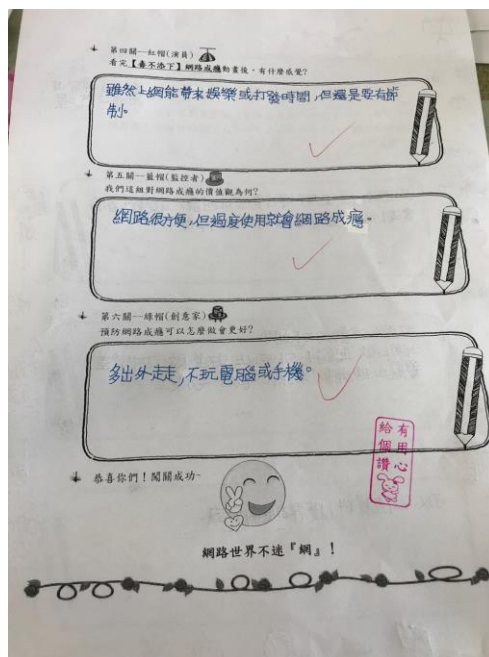 第四關--紅帽(演員)
看完【毒不添下】網路成癮動畫後，有什麼感覺?
雖然上網能帶來娛樂或打發時間，但還是要有節
制。
第五關--藍帽(監控者)
我們這組對網路成癮的價值觀為何?
網路很方便，但過度使用就會網路成癮。
第六關--綠帽(創意家)
預防網路成癮可以怎麼做會更好?
多出外走走，不玩電腦或手機。
有用心
給個讚
恭喜你們！闖關成功~
網路世界不迷『網』！